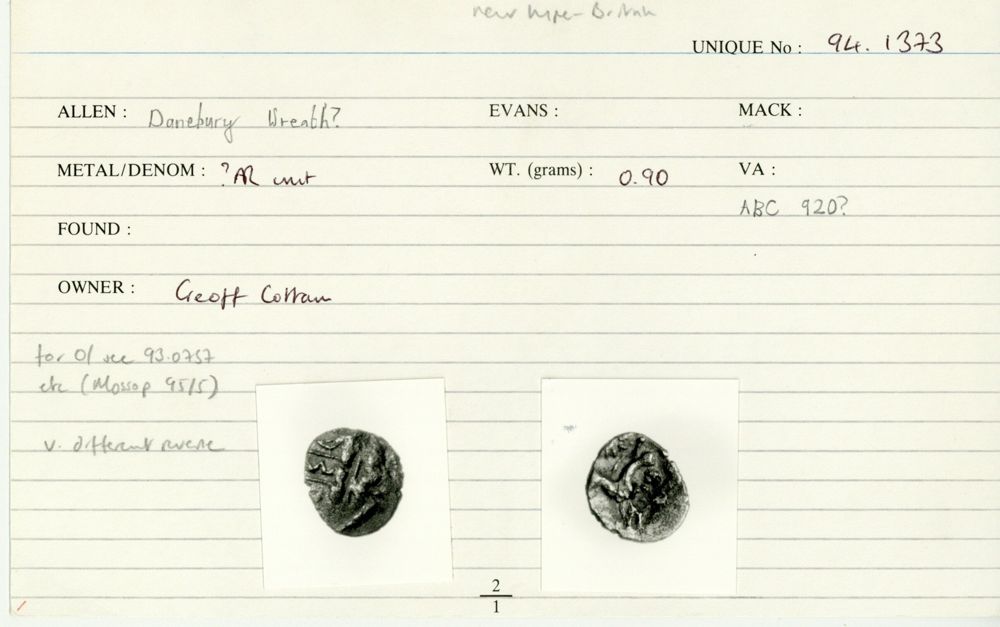 new type - British
UNIQUE No : 94.1373
ALLEN : Danebury Wreath? EVANS : MACK :
METAL/DENOM : ?AR unit WT. (grams) : 0.90 VA :
ABC 920?
FOUND :
OWNER : Geoff Cottam
for O/ see 93.0757
etc (Mossop 95/5)
v. different reverse
2
1